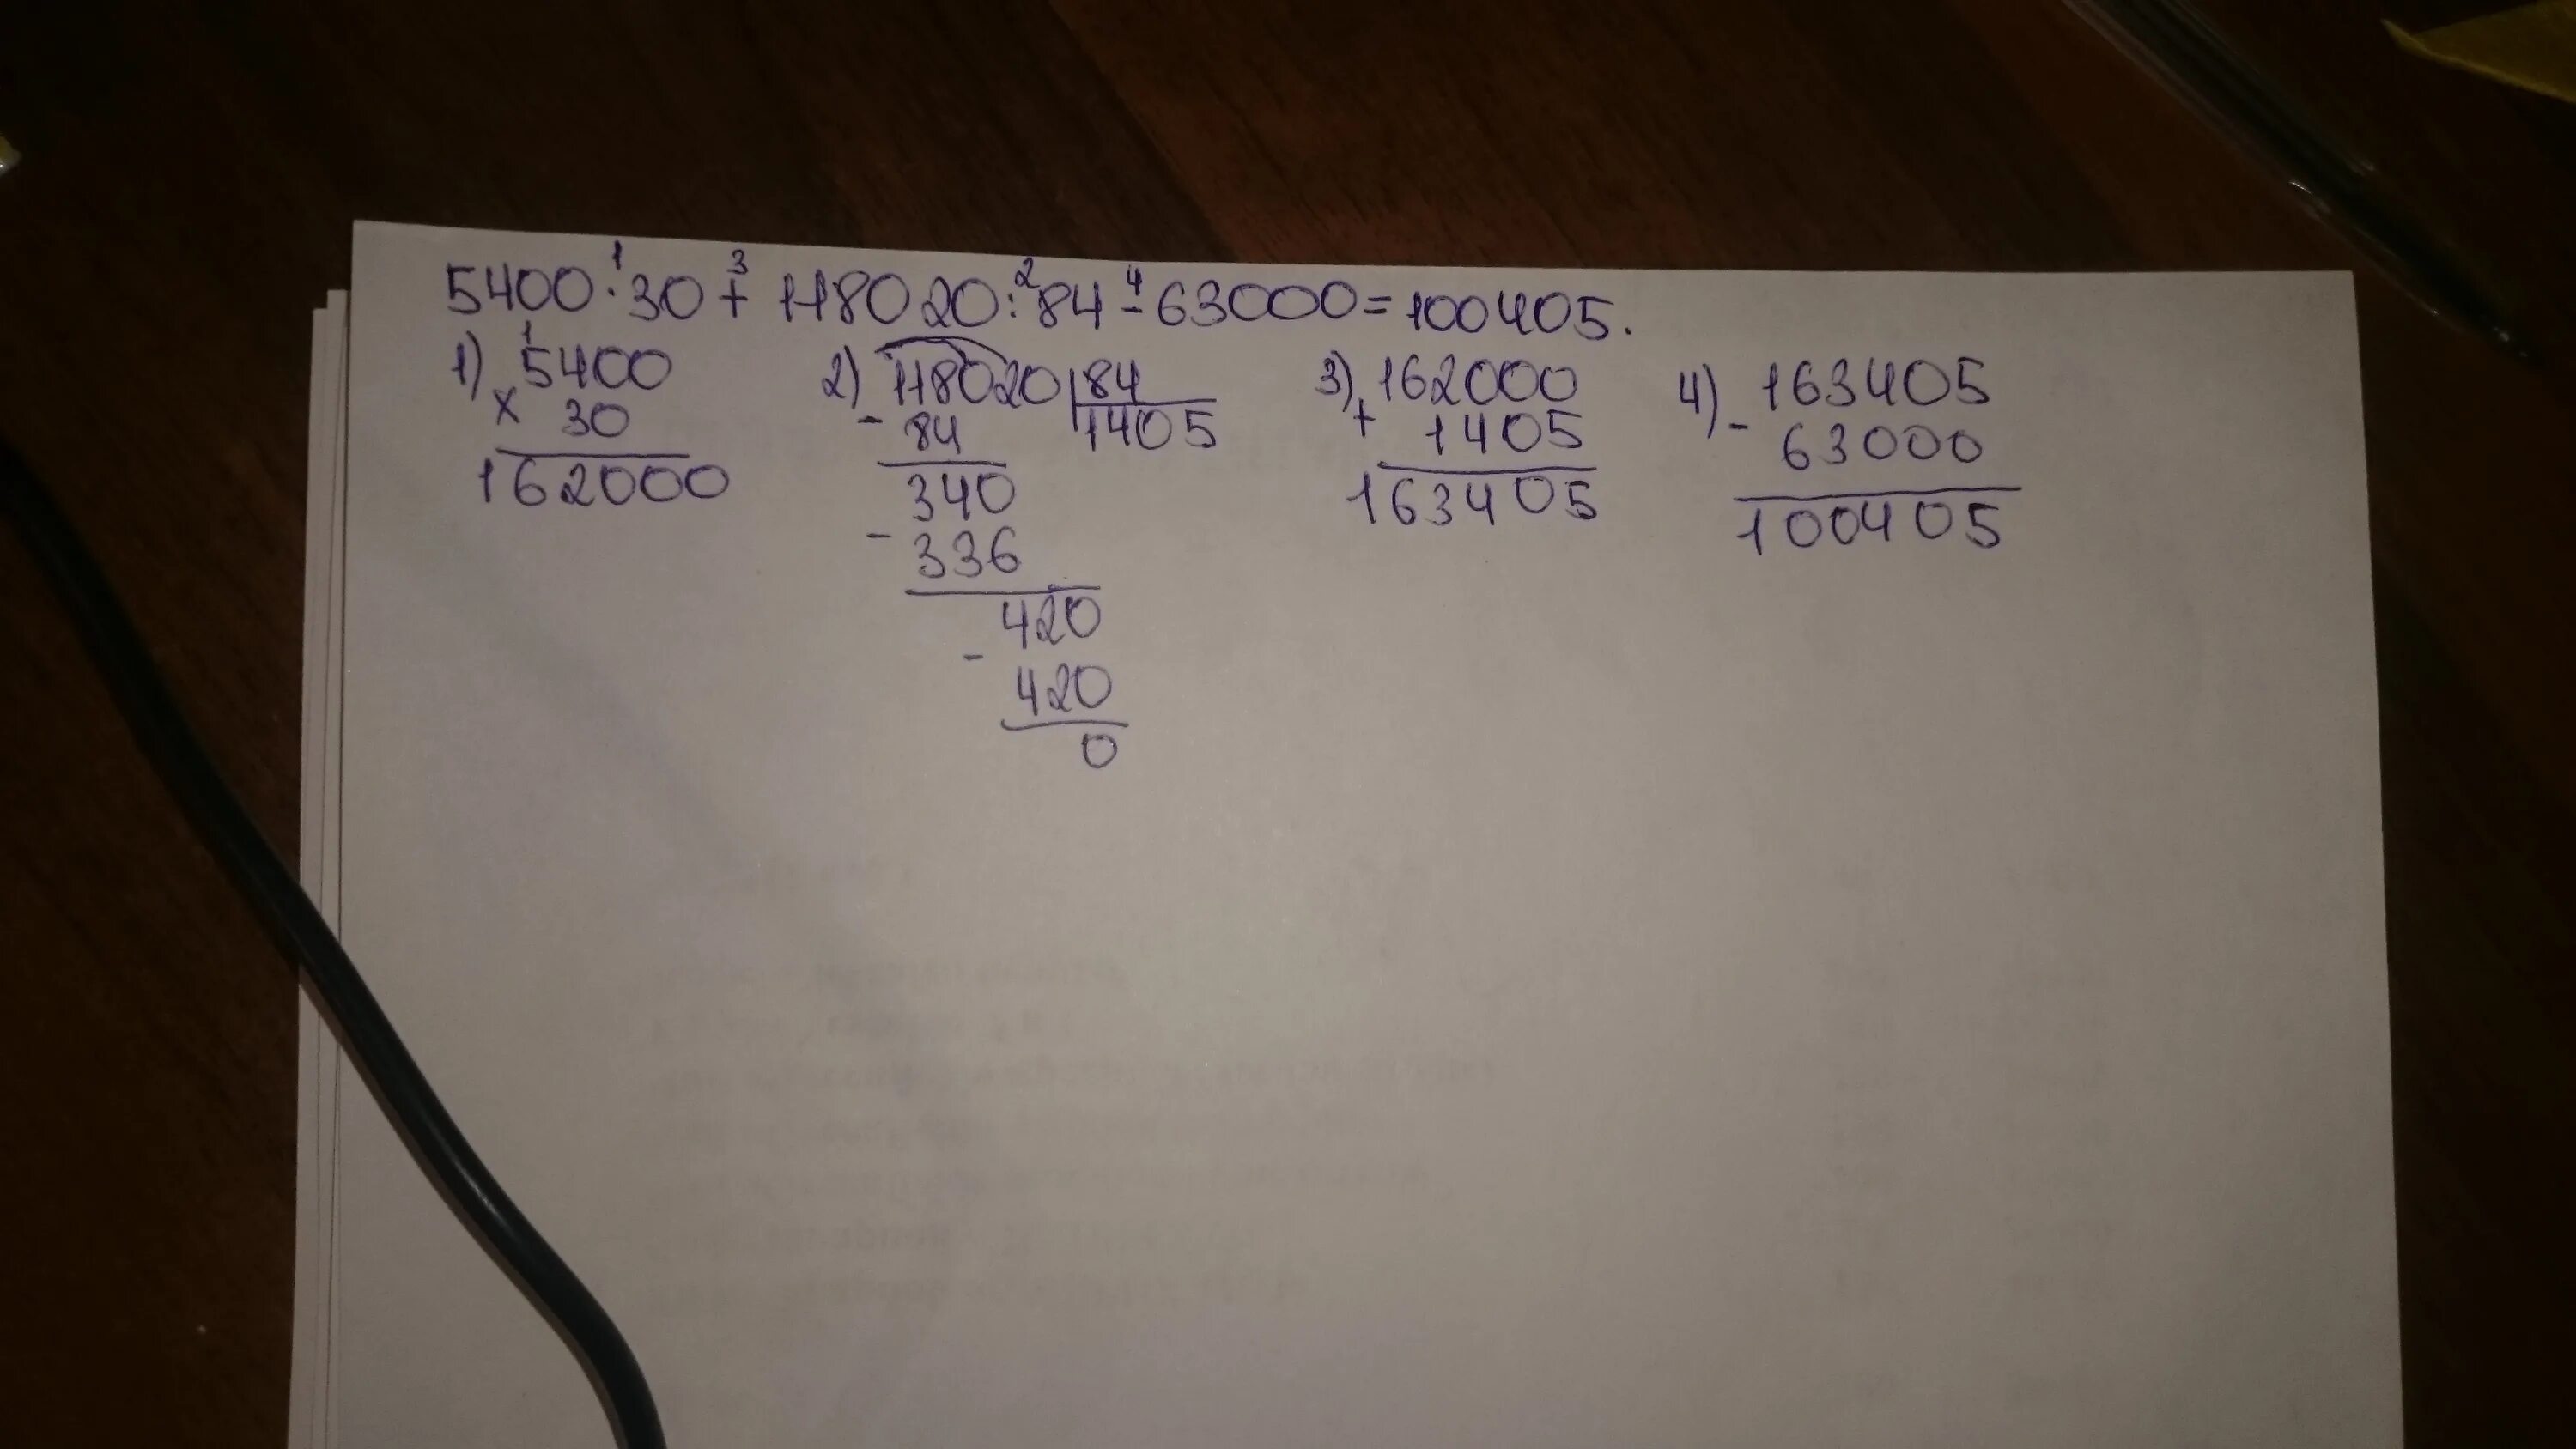 5400 · 30 + 118020 : 84 - 63000 = 100405.
1 3 2 4
1) 5400 × 30 = 162000
1
2) 118020 | 84
1405
- 84
340
- 336
420
- 420
0
3) 162000
+ 1405
163405
4) - 163405
63000
100405